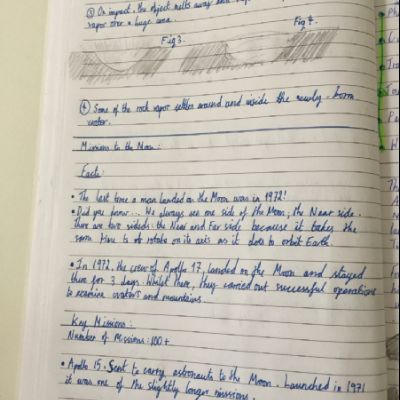 ③ On impact, the object melts away and
vapor over a huge area.
Fig 3. Fig 4.
④ Some of the rock vapor settles around and inside the newly-born
crater.
Missions to the Moon:
Facts:
• The last time a man landed on the Moon was in 1972!
• Did you know... We always see one side of the Moon, the Near side.
There are two sides: the Near and Far side because it takes the
same time to rotate on its axis as it does to orbit Earth.
• In 1972, the crew of Apollo 17, landed on the Moon and stayed
there for 3 days. Whilst there, they carried out successful operations
to examine craters and mountains.
Key Missions:
Number of Missions: 100+
• Apollo 15. Sent to carry astronauts to the Moon. Launched in 1971
it was one of the slightly longer missions.